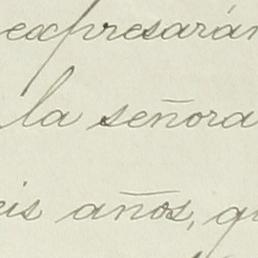 expresarán
la señora
eis años, qu